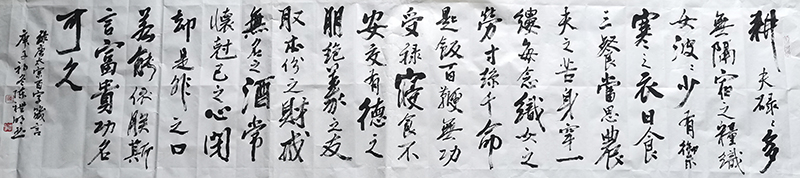 耕夫碌々多
無隔宿之糧織
女波々少有禦
寒之衣日食
三餐當思農
夫之苦身穿一
縷每念織女之
勞寸絲千命
匙飯百鞭無功
受禄寢食不
安交有德之
朋絕義之友
取本份之財戒
無名之酒常
懷尅己之心閉
却是非之口
若能依朕斯
言富貴功名
可久
錄唐太宗百字箴言
庚子初冬陳禮